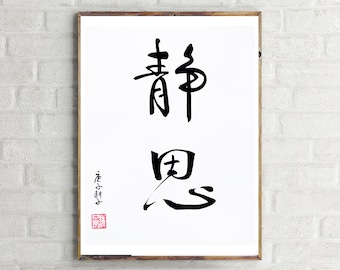 静
思
庚子